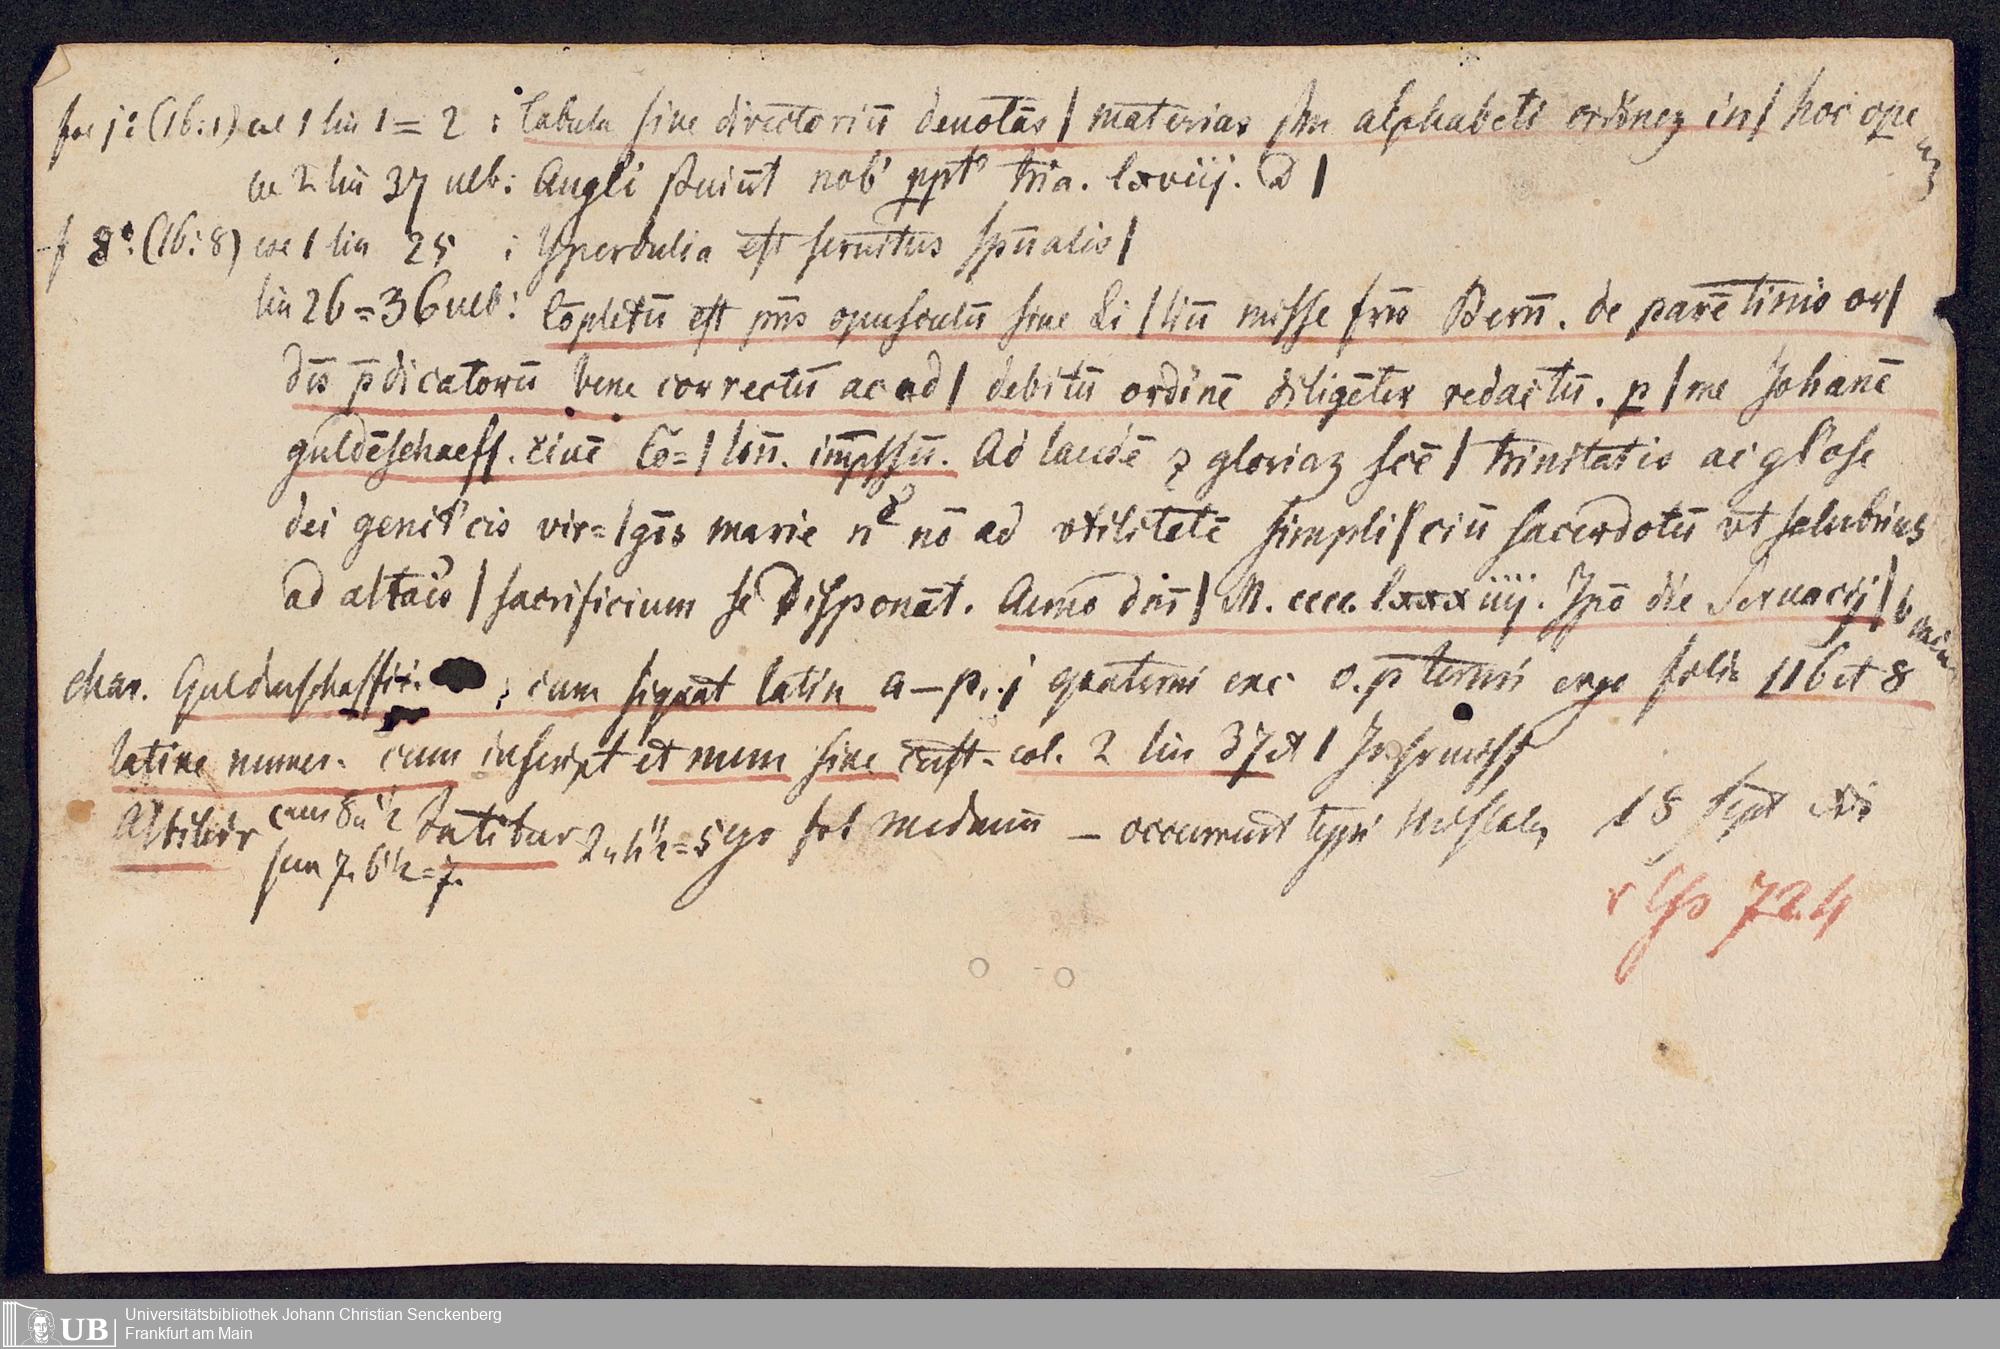 fol j: (16:1) col 1 lin 1 = 2 : Tabula siue directoriū denotās / materias s̄m alphabeti ordinez in / hoc ope
col 2 lin 37 ult: Angli s̄uiūt nob' ppt' tria. lxviij. D /
f 8: (16:8) col 1 lin 25 : Yperdulia est seruitus spūalis /
lin 26 = 36 ult: Cōpletū est pn̄s opusculū siue Li / liū misse fris Bern̄. de parētinis or /
dis p̄dicatorū bene correctū ac ad / debitū ordinē diligēter redactū. p / me Johanē
guldēschaeff. ciuē Cō= / lon̄. imp̄ssū. Ad laudē ꝛ gloriaz scē / trinitatis ac gl'ose
dei genit'cis vir= / gīs marie n nō ad vtilitatē simpli / ciū sacerdotū vt salubrius
ad altaris / sacrificium se disponāt. Anno dn̄i / M. cccc. lxxxiiij. Ipō die Seruacij /
char. Guldenschaffii. : cum signat latin a—p. j quaterni exc o. p terni ergo folia 116 et 8
latine numer. cum inscript et num sine cust. col. 2 lin 37 et
Albibibr
cum 8
18 sept
72.4
Universitätsbibliothek Johann Christian Senckenberg
Frankfurt am Main
UB